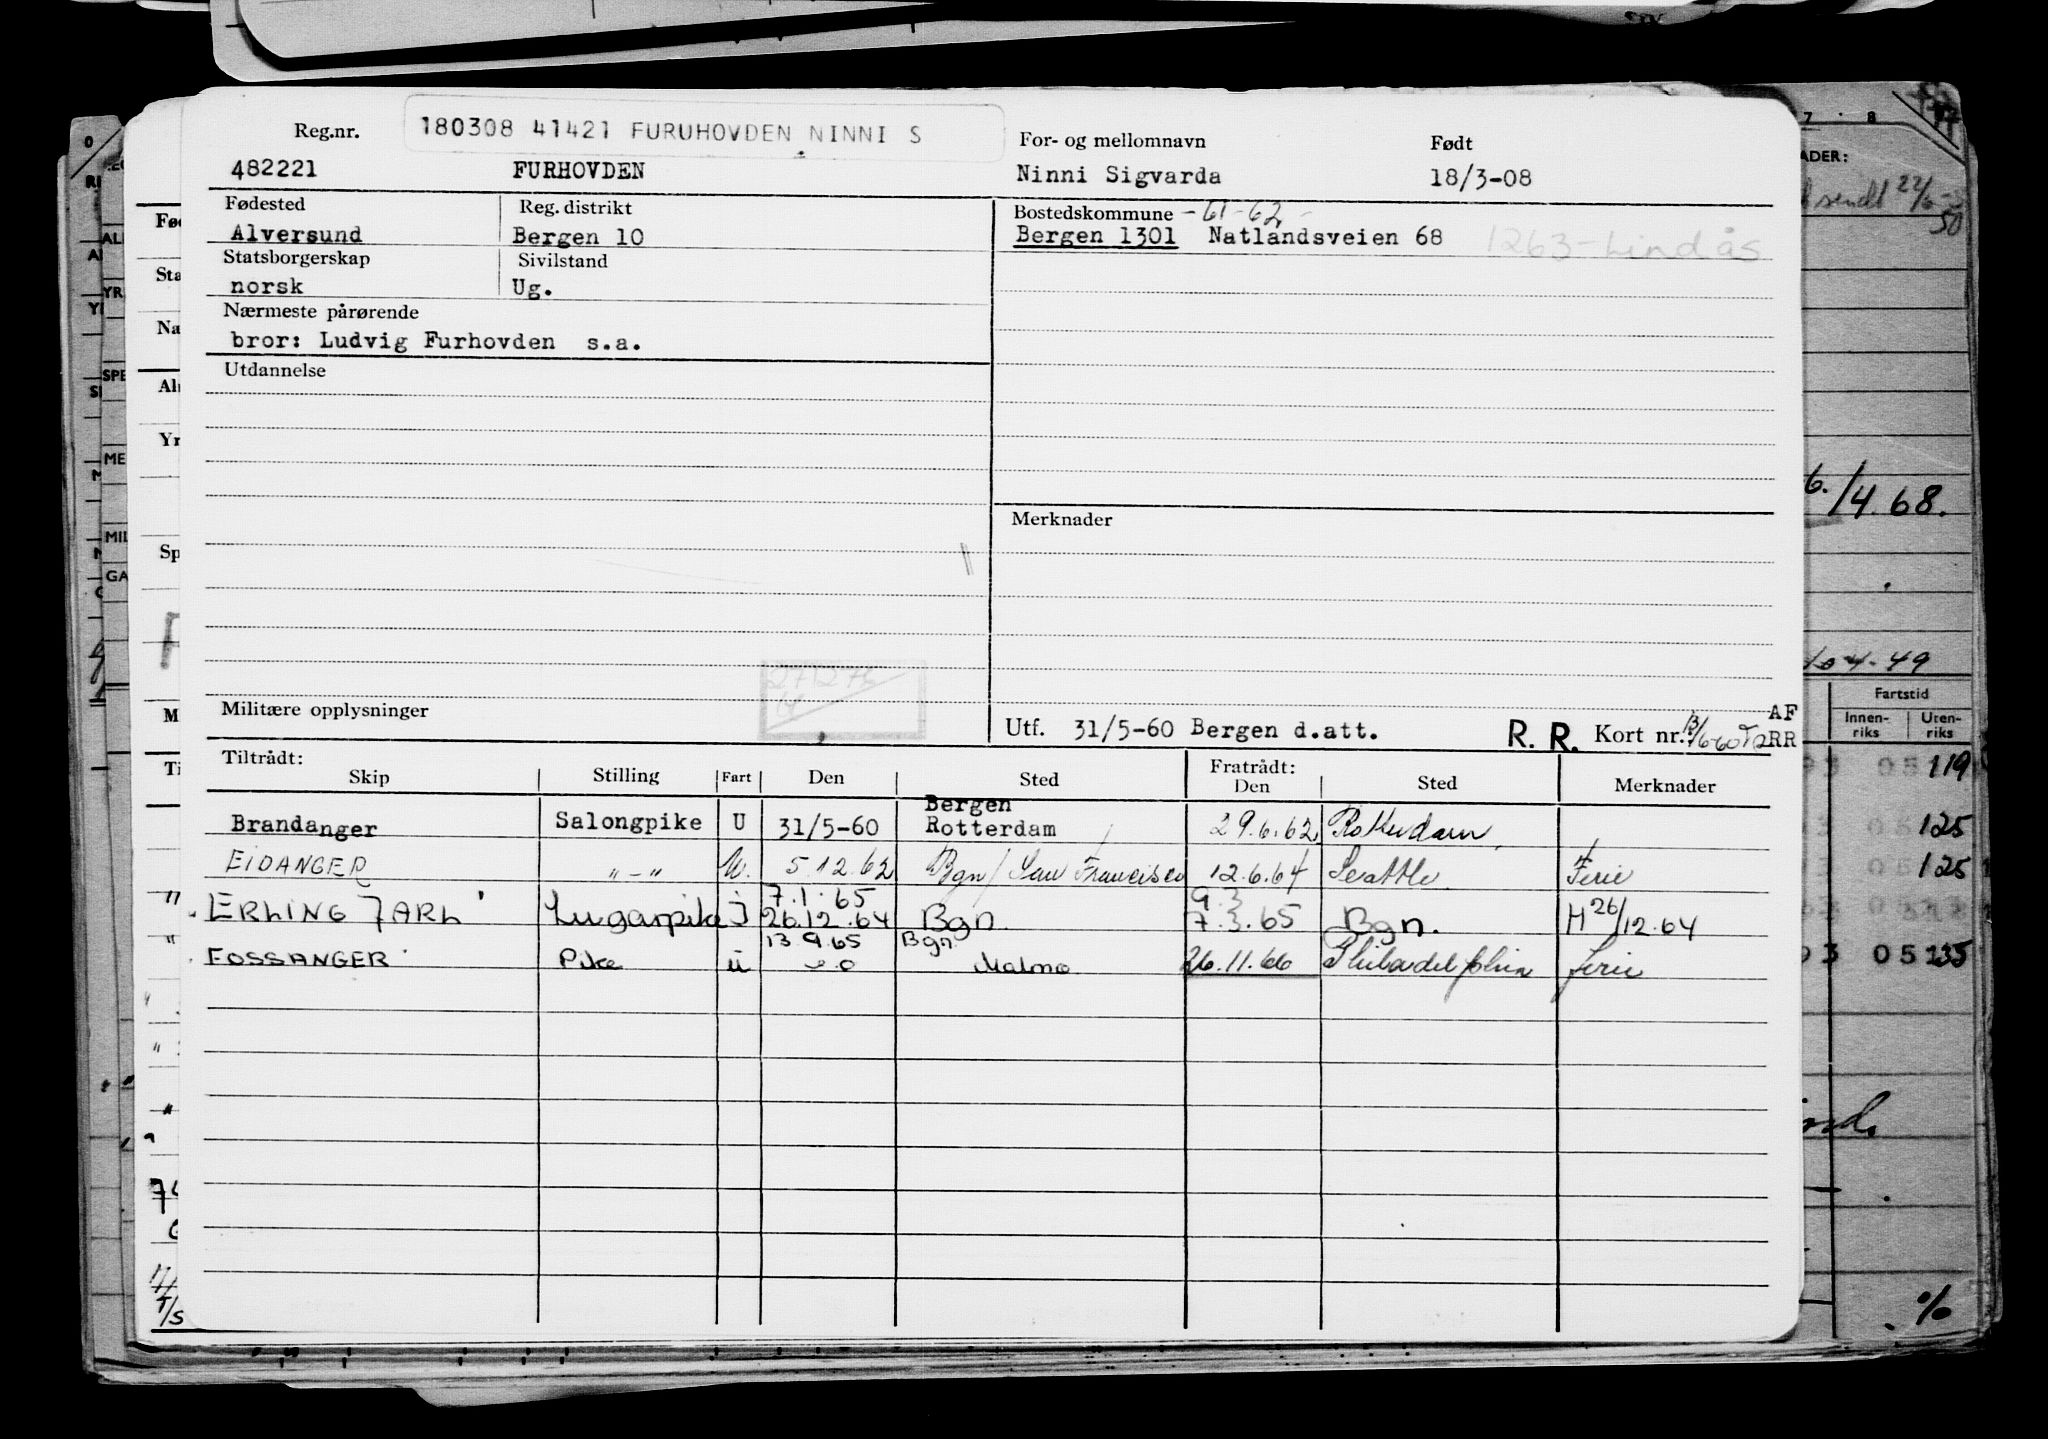 180308 41421 FURUHOVDEN NINNI S
Reg.nr. For- og mellomnavn Født
482221 FURHOVDEN Ninni Sigvarda 18/3-08
Fødested Reg. distrikt Bostedskommune -61-62-
Alversund Bergen 10 Bergen 1301 Natlandsveien 68 1263-Lindås
Statsborgerskap Sivilstand
norsk Ug.
Nærmeste pårørende
bror: Ludvig Furhovden s.a.
Utdannelse
Merknader
271276
14
Militære opplysninger
Utf. 31/5-60 Bergen d.att. R. R. Kort nr. AF
RR
Tiltrådt: Fratrådt:
Skip Stilling Fart Den Sted Den Sted Merknader
Bergen
Brandanger Salongpike U 31/5-60 Rotterdam 29.6.62 Rotterdam
EIDANGER "-" U. 5.12.62 Bgn/San Francisco 12.6.64 Seattle Ferie
7.1.65 9.3
ERLING JARL Lugarpike J 26.12.64 Bgn 7.3.65 Bgn. H 26/12.64
13.9.65 Bgn
FOSSANGER Pike U Malmø 26.11.66 Philadelphia ferie
7 8
ADER:
sendt 22/6-
50
6./4.68.
4-49
Fartstid
Innen-
riks
Uten-
riks
119
125
125
05 135
0
Fø
Sta
Na
Al
Yr
Sp
M
Ti
SPE
ME
MIL
GA
T/S
%